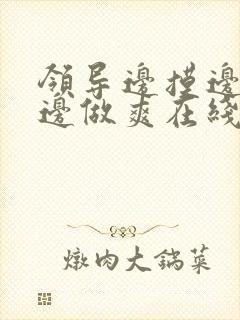 领导邊摸邊
邊做爽在綫
燉肉大鍋菜